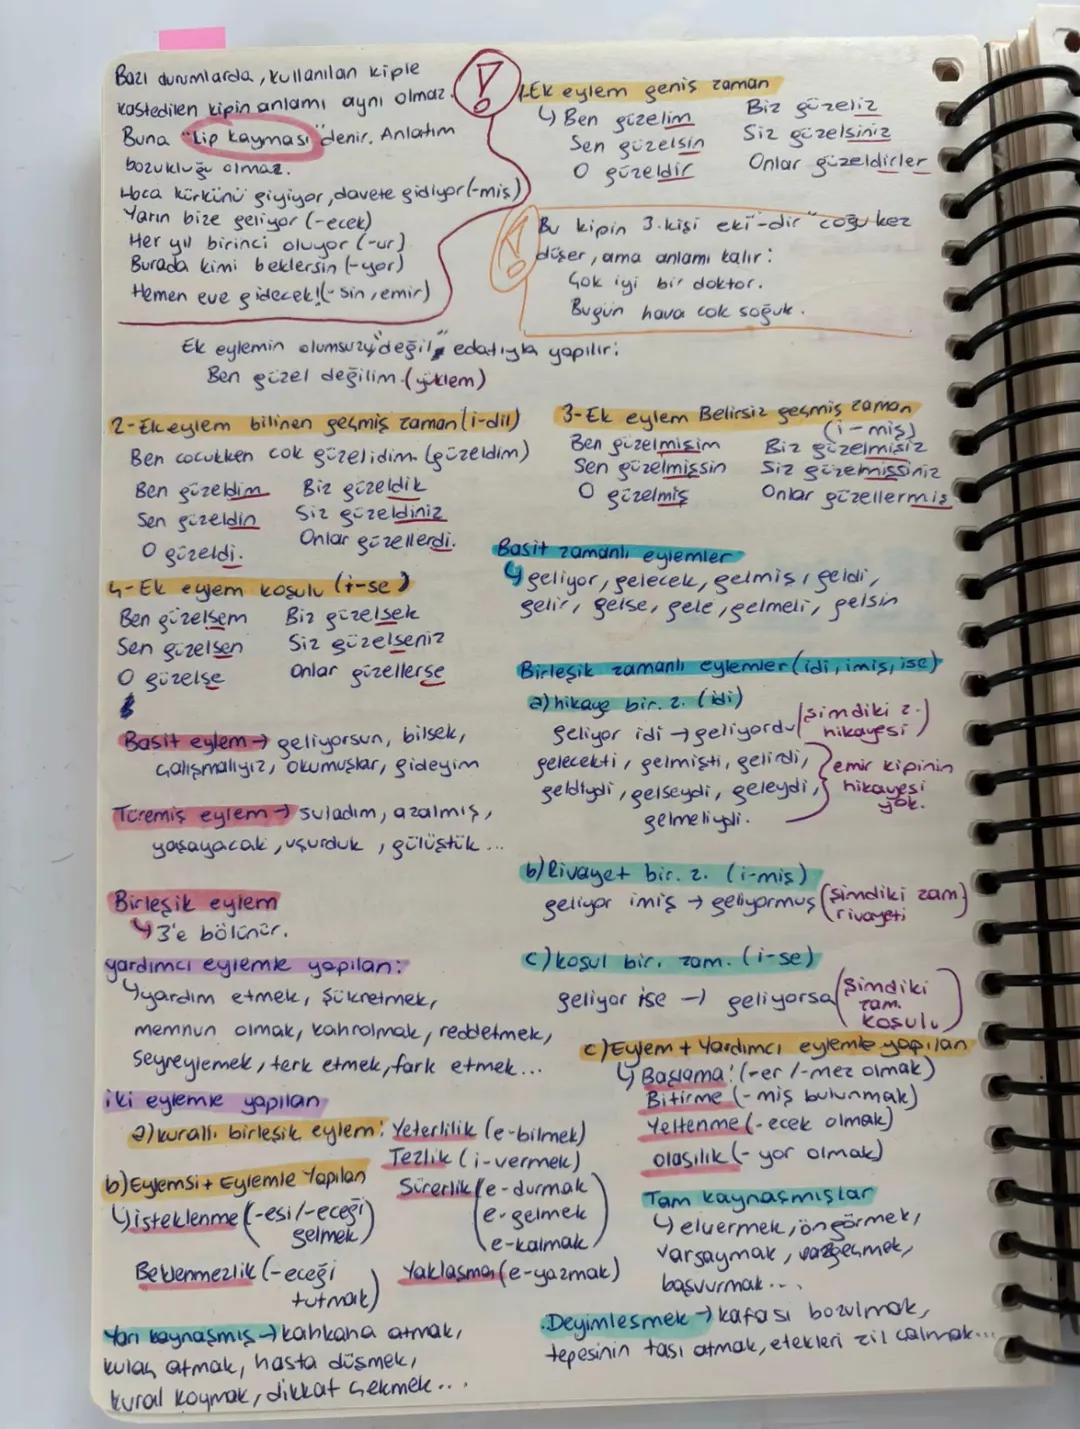 Bazı durumlarda, kullanılan kiple
kastedilen kipin anlamı aynı olmaz.
Buna "kip kayması" denir. Anlatım
bozukluğu olmaz.
Hoca kürkünü giyiyor, davete gidiyor (-miş)
Yarın bize geliyor (-ecek)
Her yıl birinci oluyor (-ur)
Burada kimi beklersin (-yor)
Hemen eve gidecek! (-sin, emir)
1-Ek eylem geniş zaman
Ben güzelim
Sen güzelsin
O güzeldir
Biz güzeliz
Siz güzelsiniz
Onlar güzeldirler
Bu kipin 3.kişi eki "-dir" çoğu kez
düşer, ama anlamı kalır:
Çok iyi bir doktor.
Bugün hava çok soğuk.
Ek eylemin olumsuzu "değil" edatıyla yapılır:
Ben güzel değilim (yüklem)
2-Ek eylem bilinen geçmiş zaman (i-di)
Ben çocukken çok güzel idim. (güzeldim)
Ben güzeldim
Sen güzeldin
O güzeldi.
Biz güzeldik
Siz güzeldiniz
Onlar güzellerdi.
3-Ek eylem Belirsiz geçmiş zaman
(i-miş)
Ben güzelmişim
Sen güzelmişsin
O güzelmiş
Biz güzelmişiz
Siz güzelmişsiniz
Onlar güzellermiş
4-Ek eylem koşulu (i-se)
Ben güzelsem
Sen güzelsen
O güzelse
Biz güzelsek
Siz güzelseniz
Onlar güzellerse
Basit eylem → geliyorsun, bilsek,
çalışmalıyız, okumuşlar, gideyim
Türemiş eylem → suladım, azalmış,
yaşayacak, uçurduk, gülüştük...
Birleşik eylem
↳3'e bölünür.
yardımcı eylemle yapılan:
↳yardım etmek, şükretmek,
memnun olmak, kahrolmak, reddetmek,
seyreylemek, terk etmek, fark etmek...
iki eylemle yapılan
a) kurallı birleşik eylem: Yeterlilik (e-bilmek)
Tezlik (i-vermek)
Sürerlik (e-durmak
e-gelmek
e-kalmak)
Yaklaşma (e-yazmak)
b) Eylemsi + Eylemle Yapılan
↳İsteklenme (-esi/-eceği
gelmek)
Beklenmezlik (-eceği
tutmak)
Yarı kaynaşmış → kahkaha atmak,
kulaç atmak, hasta düşmek,
kural koymak, dikkat çekmek...
Basit zamanlı eylemler
↳geliyor, gelecek, gelmiş, geldi,
gelir, gelse, gele, gelmeli, gelsin
Birleşik zamanlı eylemler (idi, imiş, ise)
a) hikaye bir. z. (idi)
geliyor idi → geliyordu (şimdiki z.
hikayesi)
gelecekti, gelmişti, gelirdi,
geldiydi, gelseydi, geleydi,
gelmeliydi.
emir kipinin
hikayesi
yok.
b) Rivayet bir. z. (i-miş)
geliyor imiş → geliyormuş (şimdiki zam.
rivayeti)
c) koşul bir. zam. (i-se)
geliyor ise → geliyorsa (şimdiki
zam.
koşulu)
c) Eylem + Yardımcı eylemle yapılan
↳Başlama: (-er/-mez olmak)
Bitirme (-miş bulunmak)
Yeltenme (-ecek olmak)
olasılık (-yor olmak)
Tam kaynaşmışlar
↳elvermek, öngörmek,
varsaymak, vazgeçmek,
başvurmak...
Deyimleşmek → kafası bozulmak,
tepesinin tası atmak, etekleri zil çalmak...